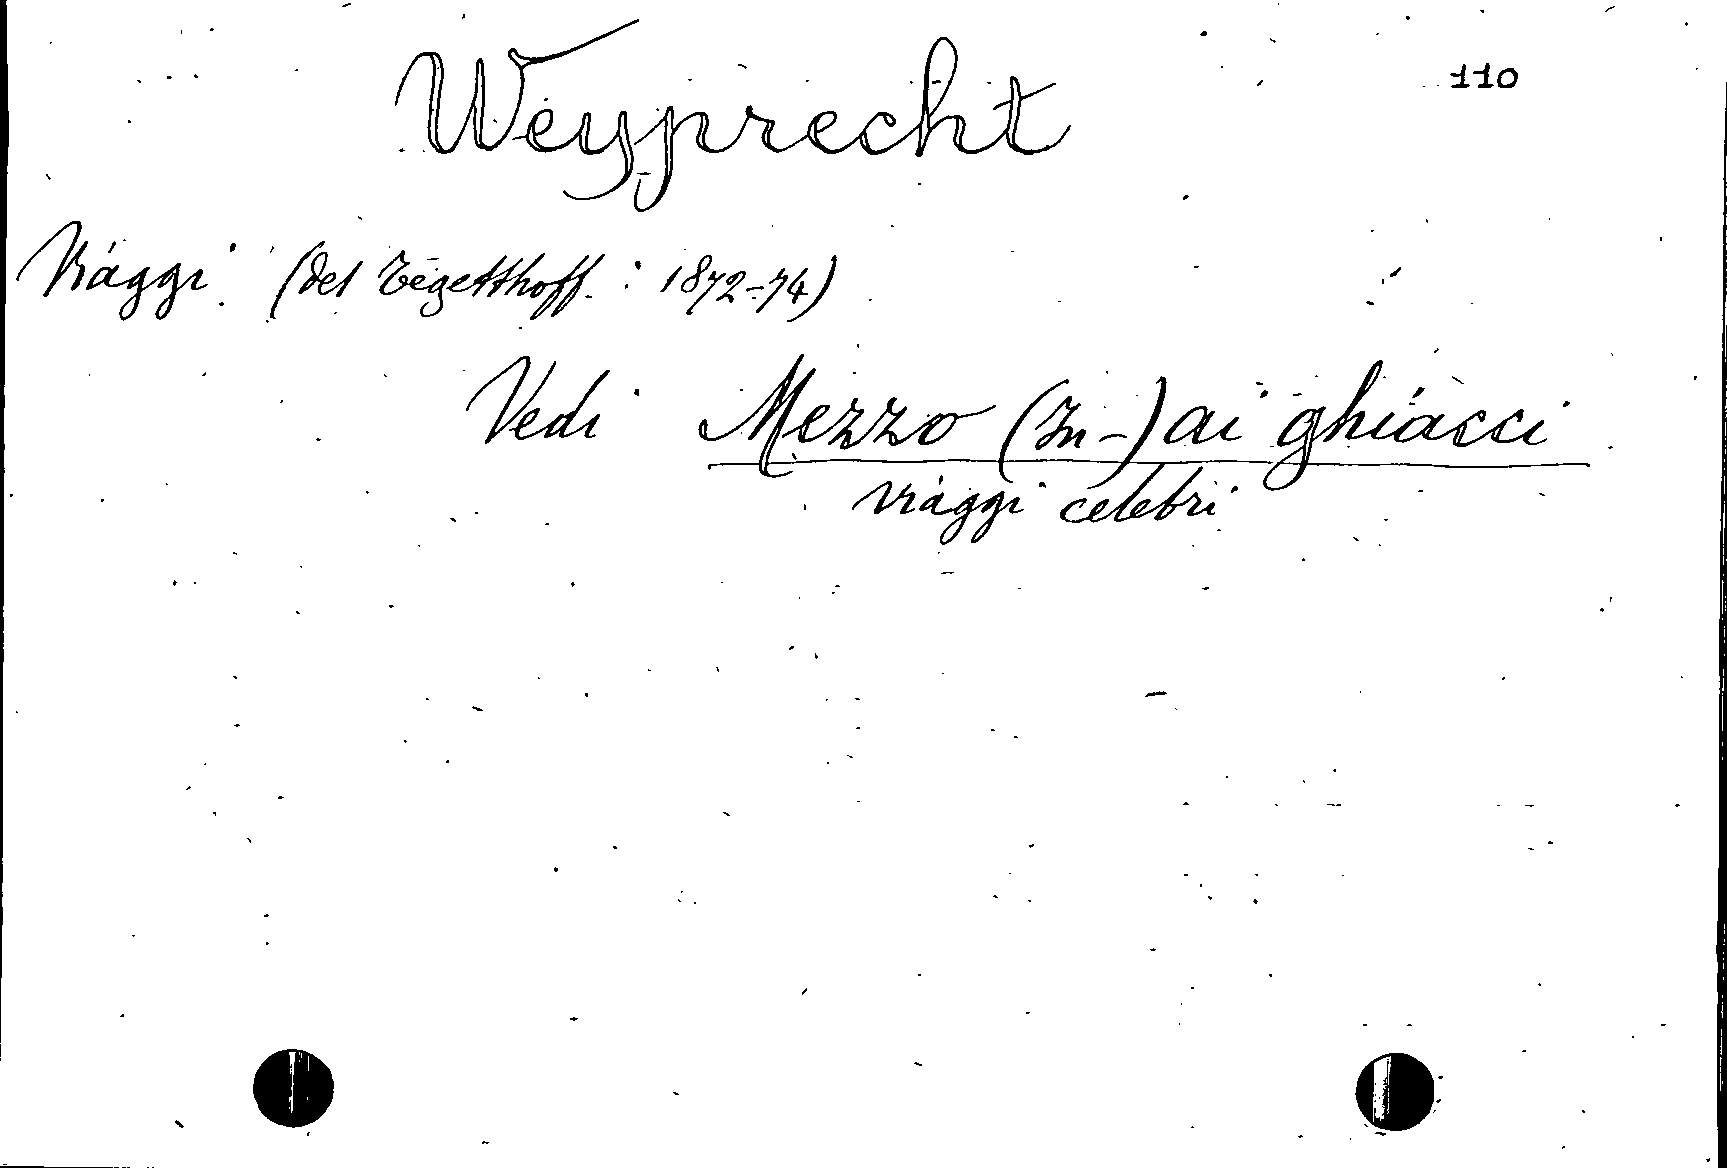 Weyprecht
110
Viaggi (del Tegetthoff : 1872-74)
Vedi Mezzo (In-) ai ghiacci
viaggi celebri